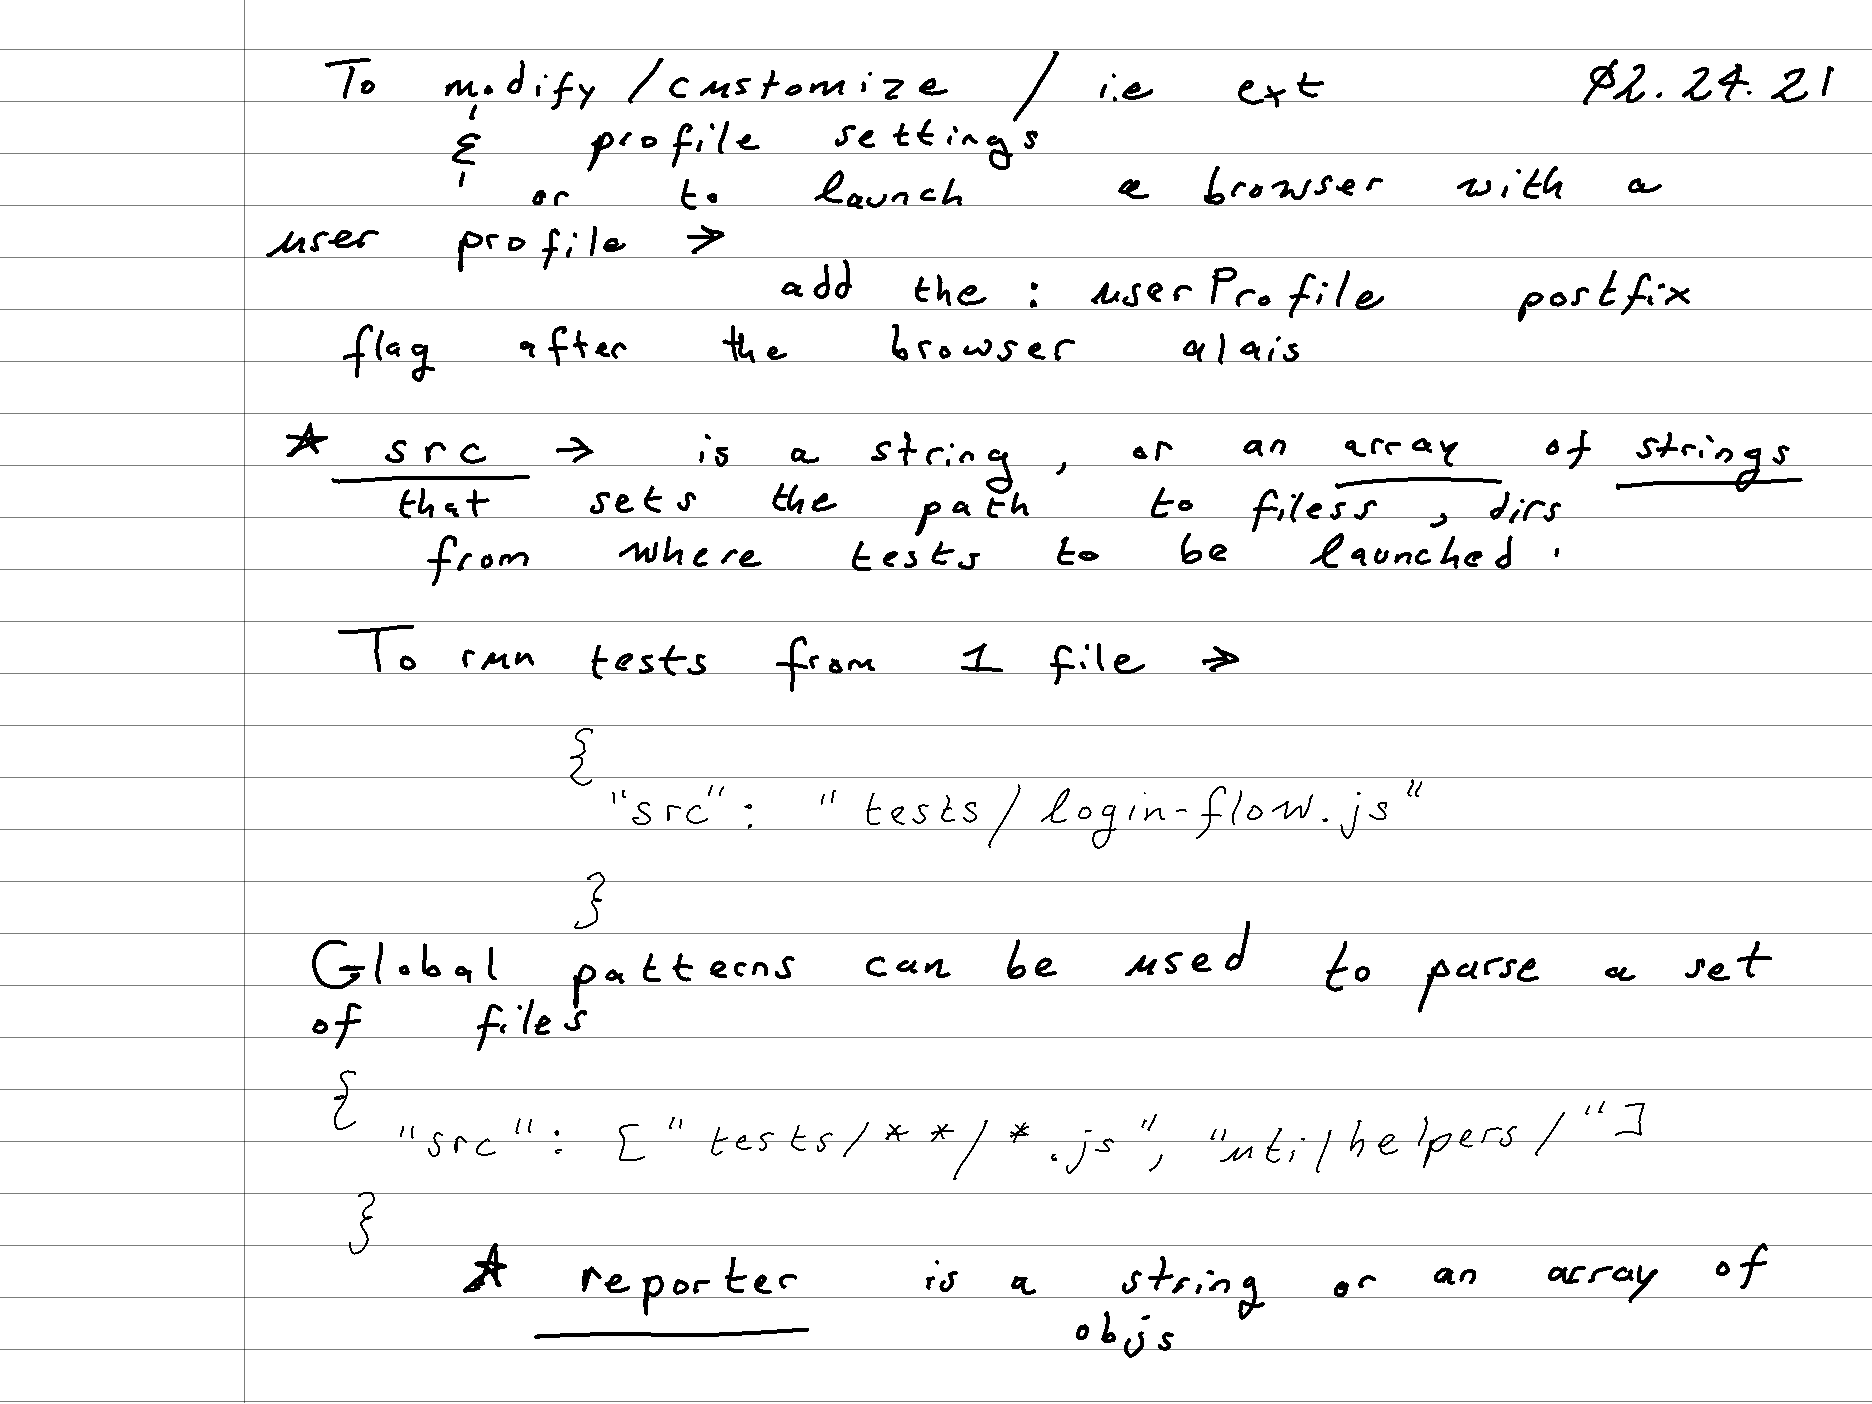 To modify / customize / i.e ext 02.24.21
& profile settings
or to launch a browser with a
user profile →
add the : userProfile postfix
flag after the browser alais
☆ src → is a string, or an array of strings
that sets the path to filess, dirs
from where tests to be launched.
To run tests from 1 file →
{
"src": "tests/login-flow.js"
}
Global patterns can be used to parse a set
of files
{
"src": ["tests/**/*.js", "util/helpers/"]
}
☆ reporter is a string or an array of
objs